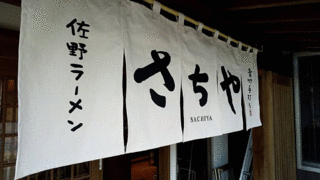 佐野ラーメン
さちや
SACHIYA